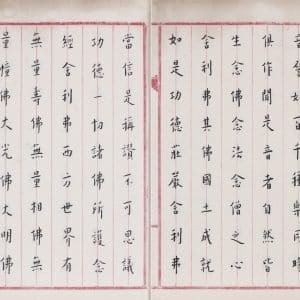 如百千種樂同時
俱作聞是音者自然皆
生念佛念法念僧之心
舍利弗其佛國土成就
如是功德莊嚴舍利弗
當信是稱讚不可思議
功德一切諸佛所護念
經舍利弗西方世界有
無量壽佛無量相佛無
量幢佛大光佛大明佛